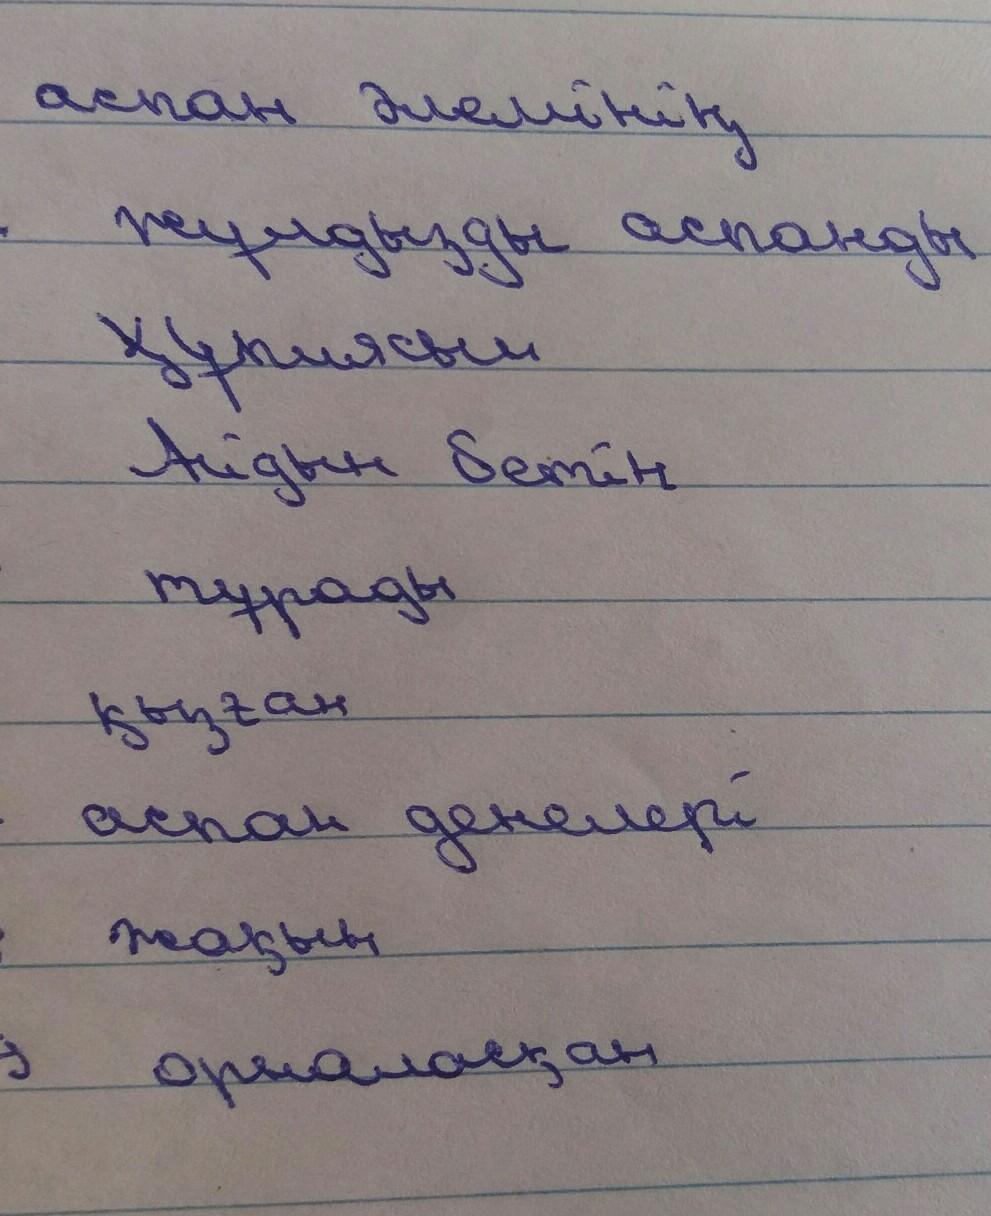 аспан әлемінің
жұлдызды аспанды
Құпиясын
Айдын бетін
тұрады
қызған
аспан денелері
жақын
орналасқан